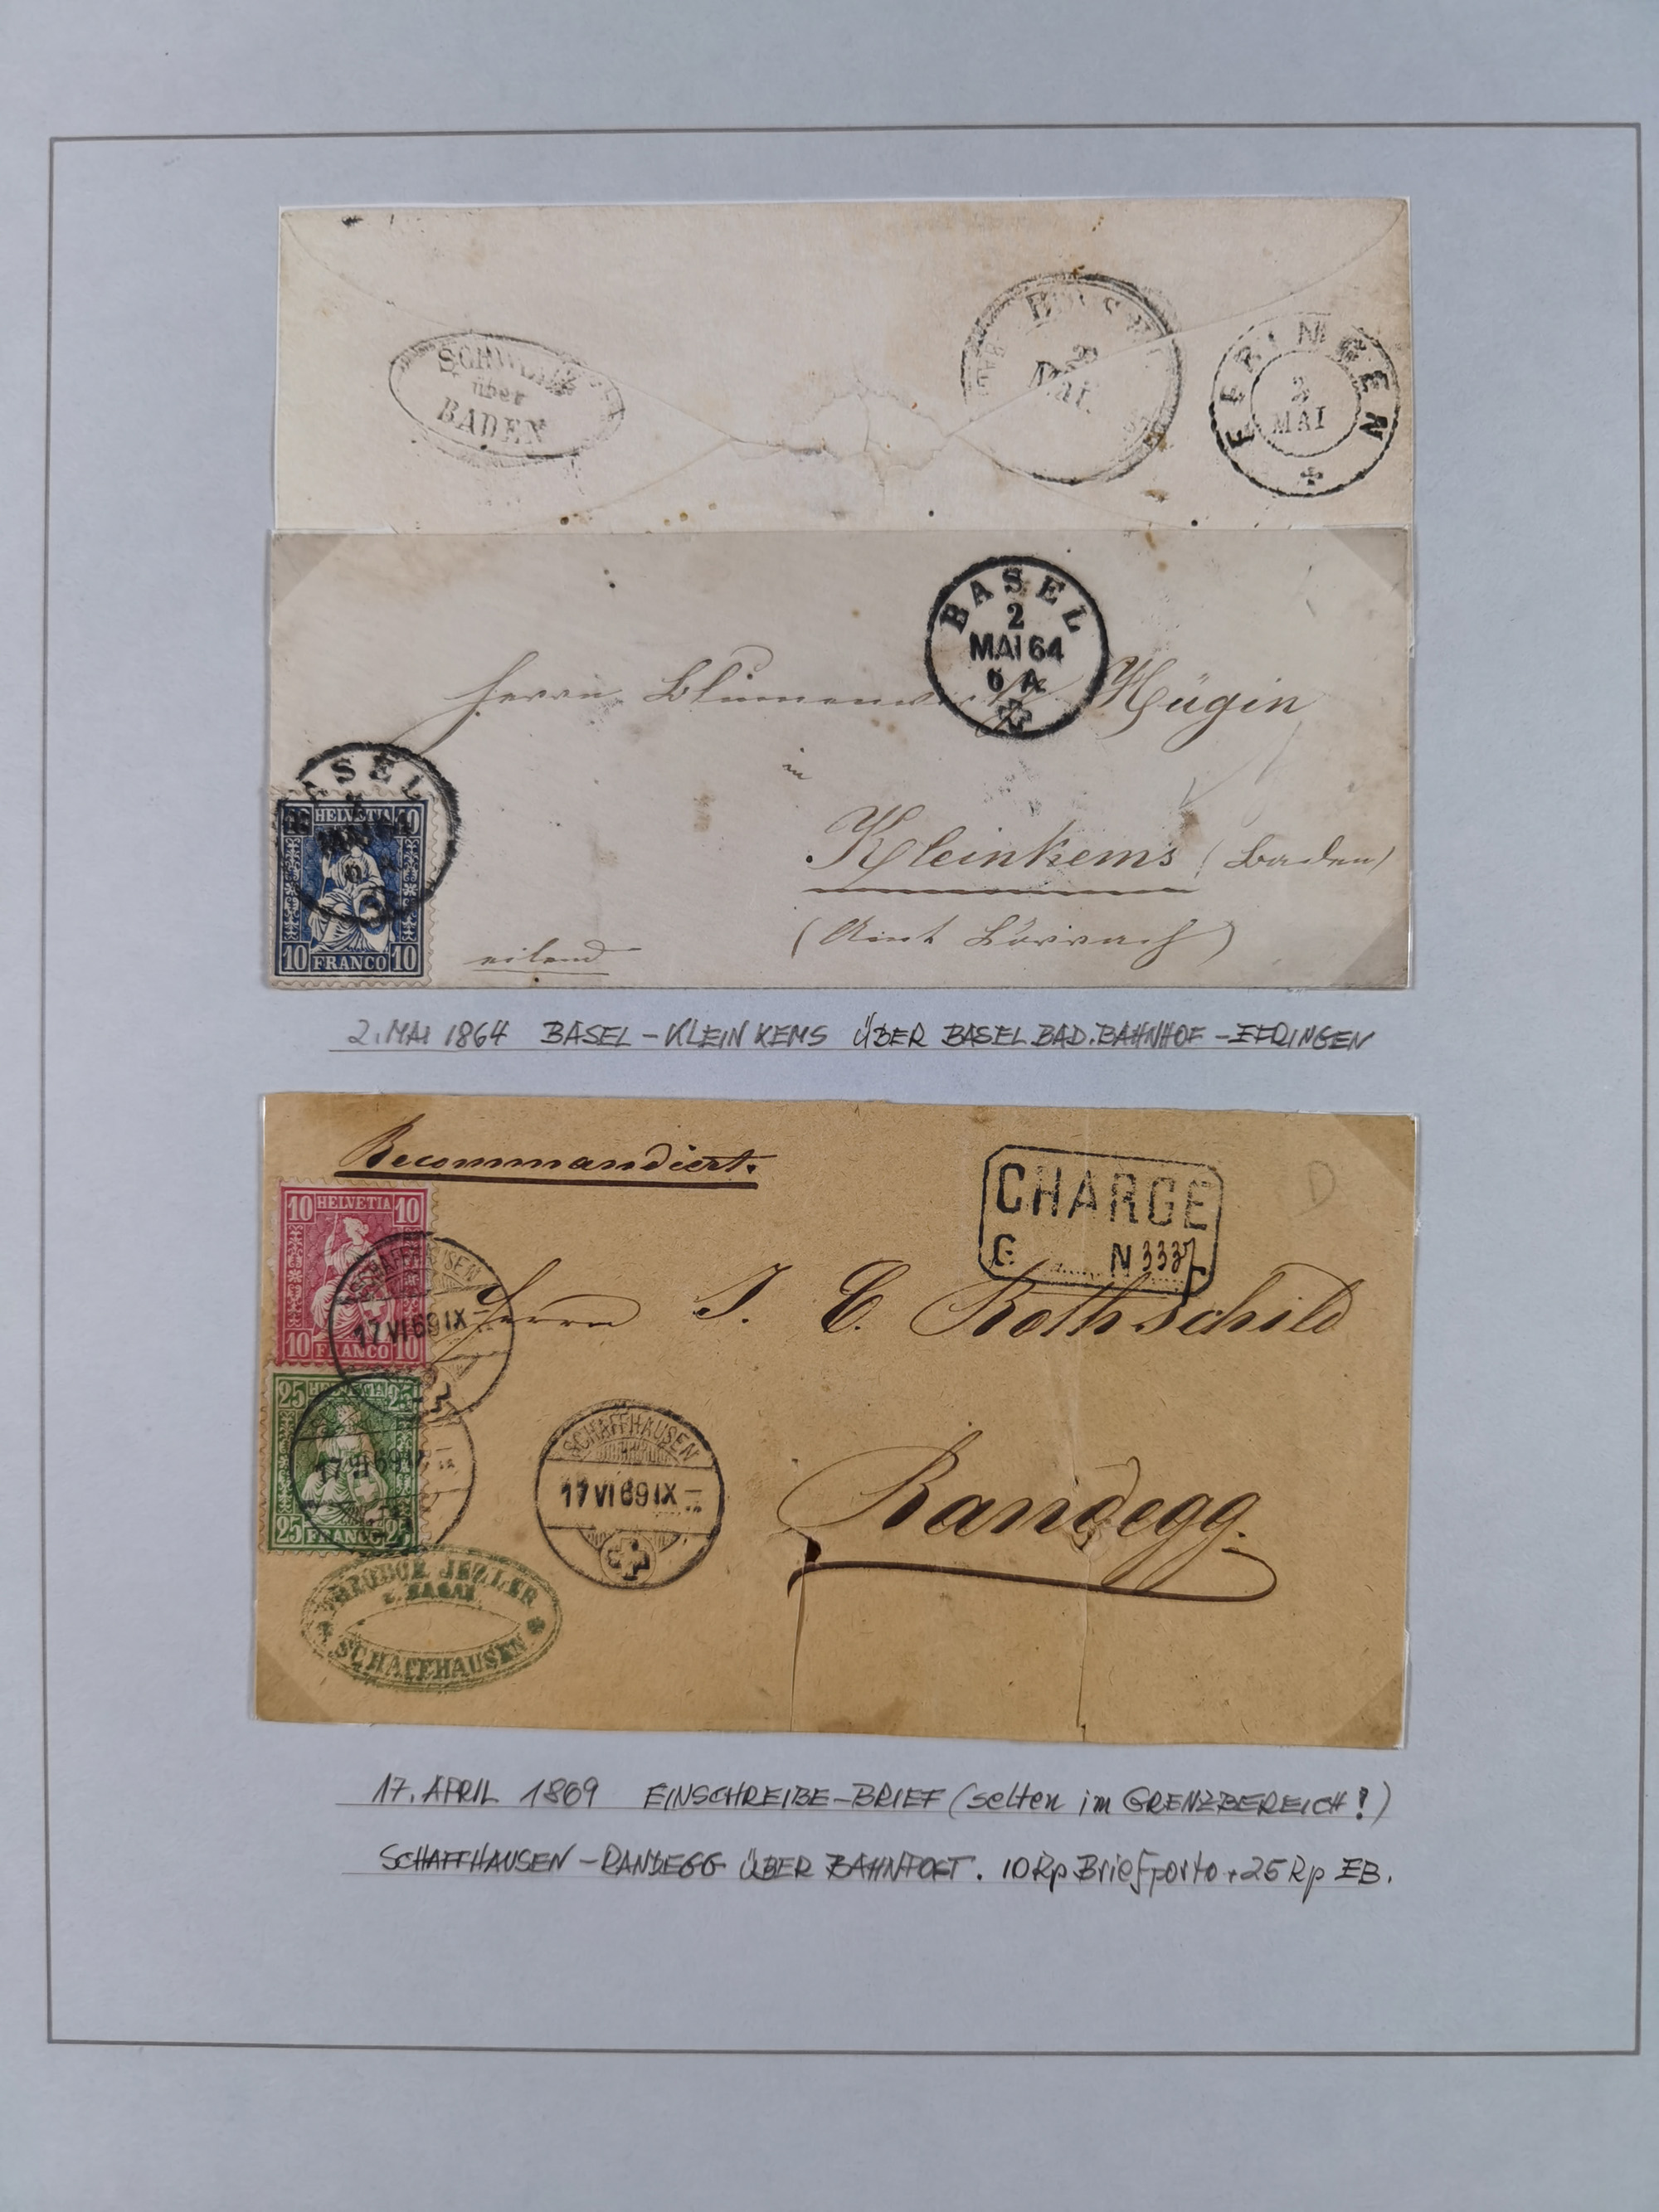 SCHWEIZ
über
BADEN
2
MAI
EFRINGEN
2
MAI
BASEL
2
MAI 64
6 A
Herrn Blumenwirth Hügin
in
Kleinkems (Baden)
(Amt Lörrach)
eilend
BASEL
10 HELVETIA 10
10 FRANCO 10
2. MAI 1864 BASEL – KLEIN KEMS ÜBER BASEL BAD. BAHNHOF – EFRINGEN
Recommandiert.
CHARGE
N 3337
10 HELVETIA 10
10 FRANCO 10
SCHAFFHAUSEN
17 VI 69 IX
Herrn J. E. Rothschild
25 HELVETIA 25
25 FRANCO 25
17 VI 69 IX
SCHAFFHAUSEN
17 VI 69 IX
Randegg.
JEZLER
SCHAFFHAUSEN
17. APRIL 1869 EINSCHREIBE–BRIEF (selten im GRENZBEREICH!)
SCHAFFHAUSEN – RANDEGG ÜBER BAHNPOST. 10 Rp Briefporto + 25 Rp EB.